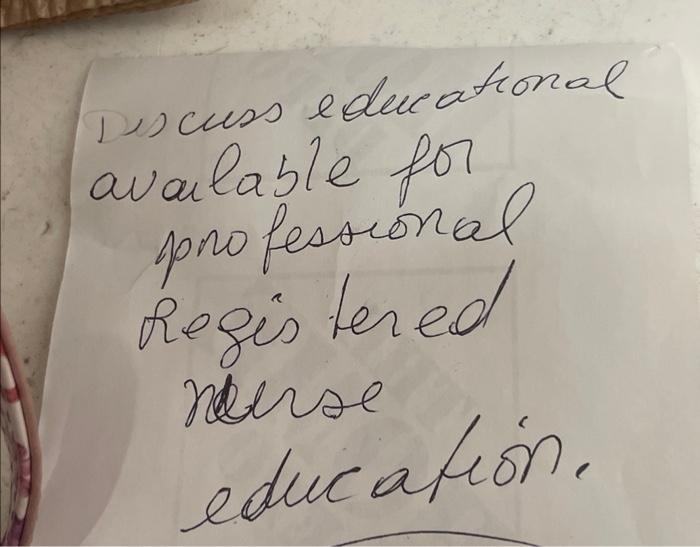 Discuss educational
available for
professional
Registered
nurse
education.